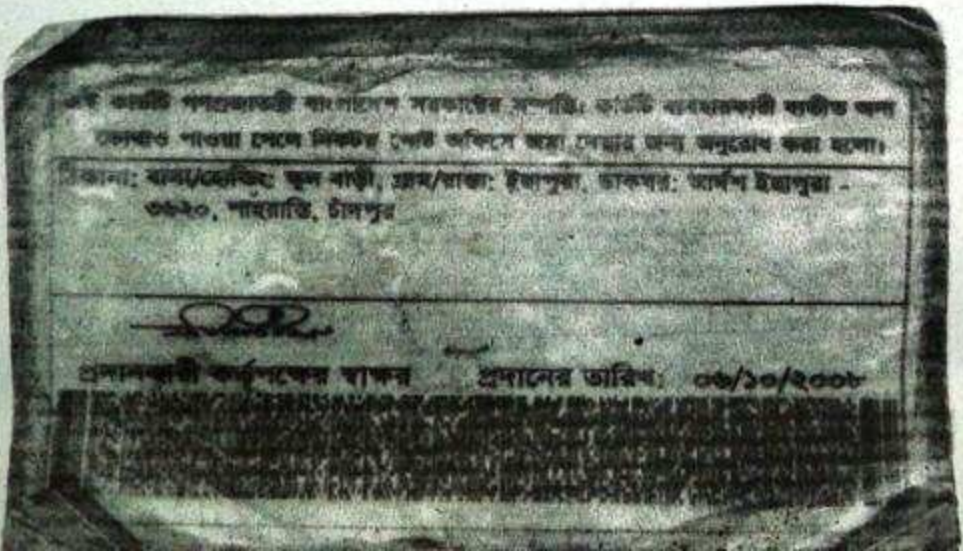 এই কার্ডটি গণপ্রজাতন্ত্রী বাংলাদেশ সরকারের সম্পত্তি। কার্ডটি ব্যবহারকারী ব্যতীত অন্য
কোথাও পাওয়া গেলে নিকটস্থ পোস্ট অফিসে জমা দেয়ার জন্য অনুরোধ করা হলো।
ঠিকানা: বাসা/হোল্ডিং: বাড়ী, গ্রাম/রাস্তা: ইছাপুরা, ডাকঘর: ইছাপুরা -
৩৬২০, শাহরাস্তি, চাঁদপুর
প্রদানকারী কর্তৃপক্ষের স্বাক্ষর প্রদানের তারিখ: ০৬/১০/২০০৮